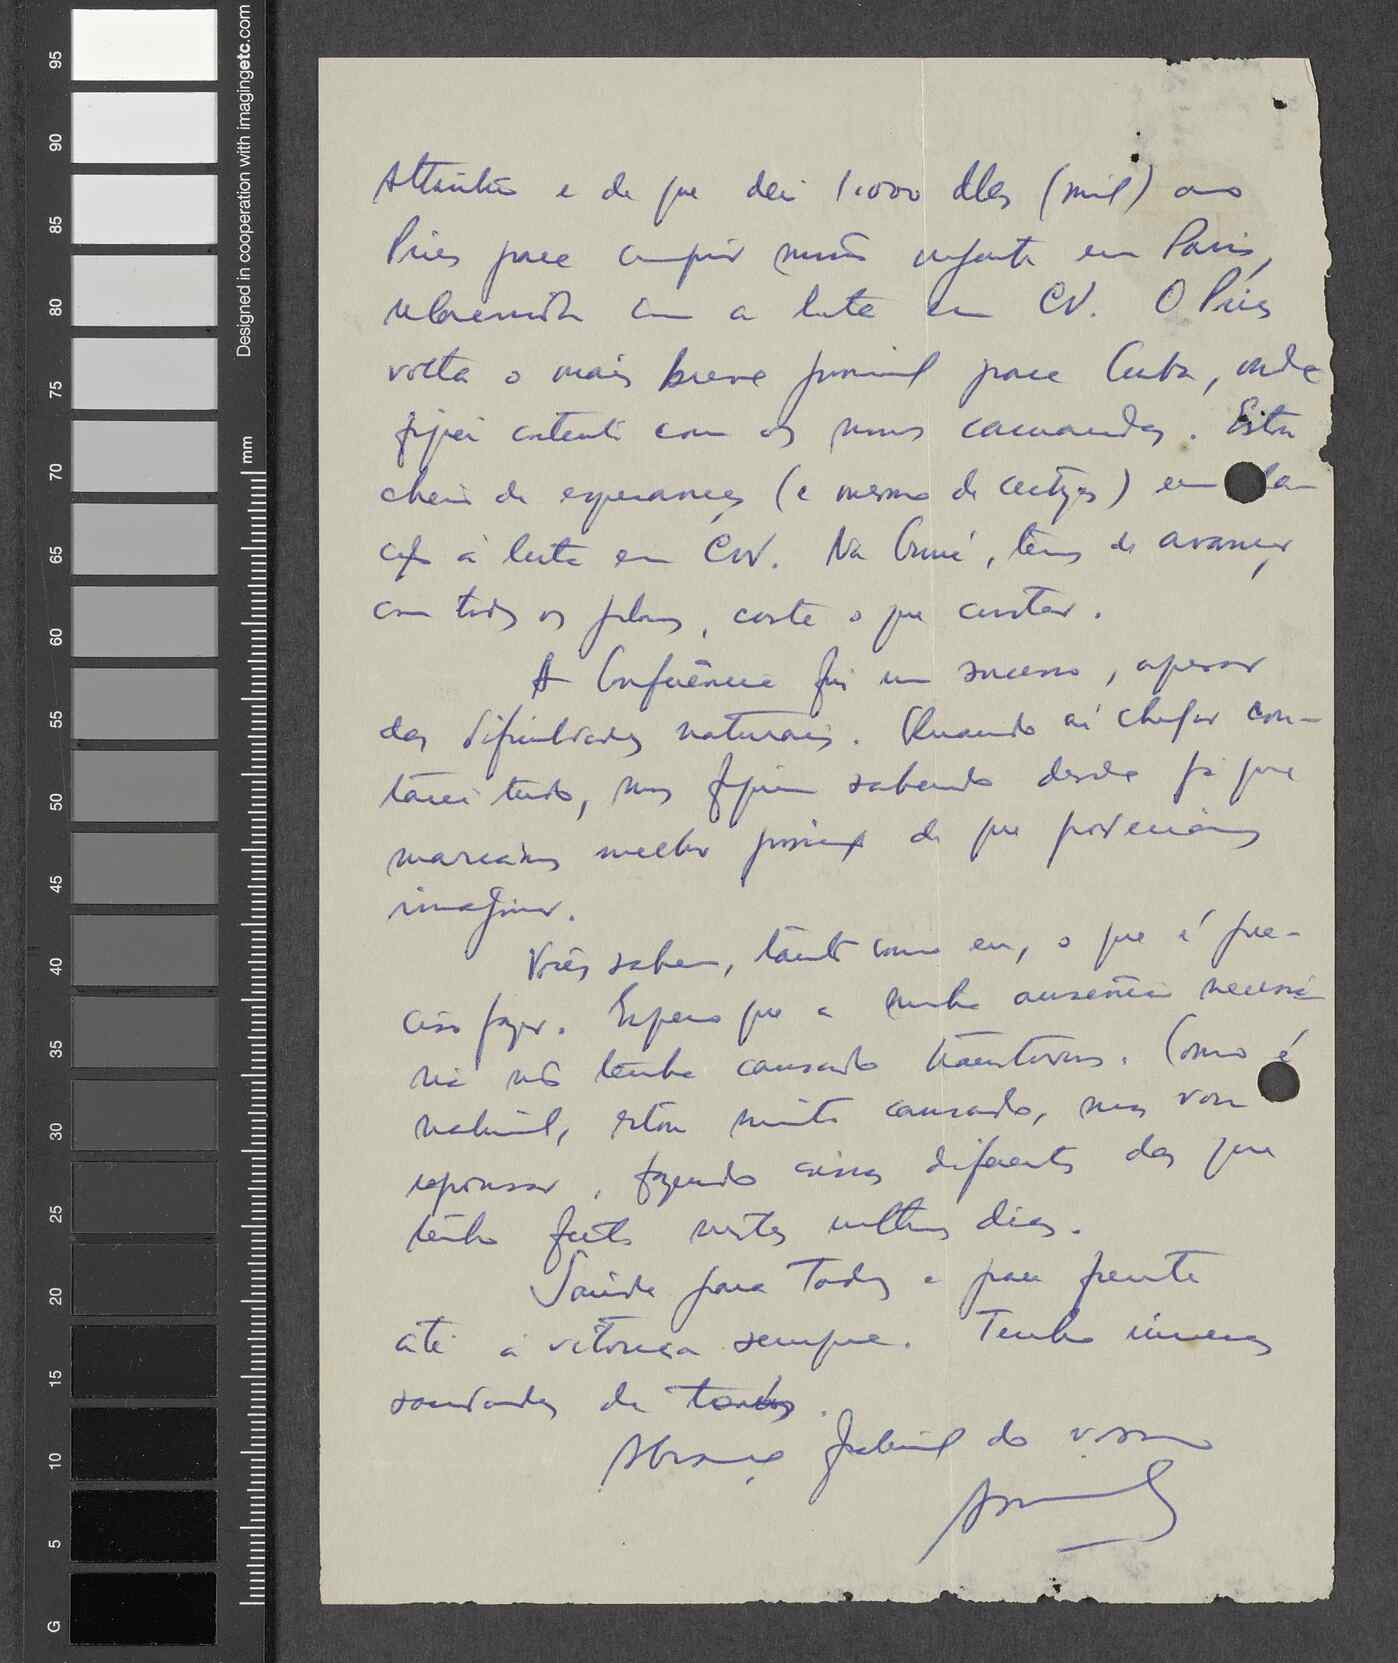 Designed in cooperation with imagingetc.com
mm
95
90
85
80
75
70
65
60
55
50
45
40
35
30
25
20
15
10
5
G
e de que dei 1.000 dles (mil) ao
Pires para cumprir missão urgente em Paris,
relacionada com a luta em CV. O Pires
volta o mais breve possível para Cuba, onde
fiquei contente com os nossos camaradas. Estou
cheio de esperanças (e mesmo de certezas) em rela-
ção à luta em CV. Na Guiné, temos de avançar
com todos os planos, custe o que custar.
A Conferência foi um sucesso, apesar
das dificuldades naturais. Quando aí chegar con-
tarei tudo, mas fiquem sabendo desde já que
marcámos melhor posição do que poderíamos
imaginar.
Vocês sabem, tanto como eu, o que é pre-
ciso fazer. Espero que a minha ausência necessá-
ria não tenha causado transtornos. Como é
natural, estou muito cansado, mas vou
repousar, fazendo coisas diferentes das que
tenho feito nestes ultimos dias.
Saúde para Todos e para frente
até à vitória sempre. Tenho imensas
saudades de todos.
Abraço fraternal do vosso